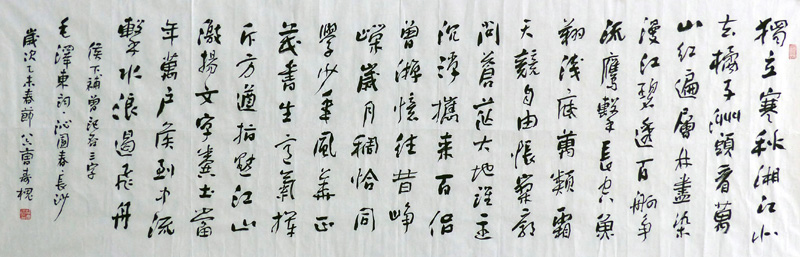 獨立寒秋湘江北
去橘子洲頭看萬
山紅遍層林盡染
漫江碧透百舸爭
流鷹擊長空魚
翔淺底萬類霜
天競自由悵寥廓
問蒼茫大地誰主
沉浮攜來百侶
曾游憶往昔崢
嶸歲月稠恰同
學少年風華正
茂書生意氣揮
斥方遒指點江山
激揚文字糞土當
年萬戶侯到中流
擊水浪遏飛舟
侯下補曾記否三字
毛澤東詞·沁園春·長沙
歲次乙未春節